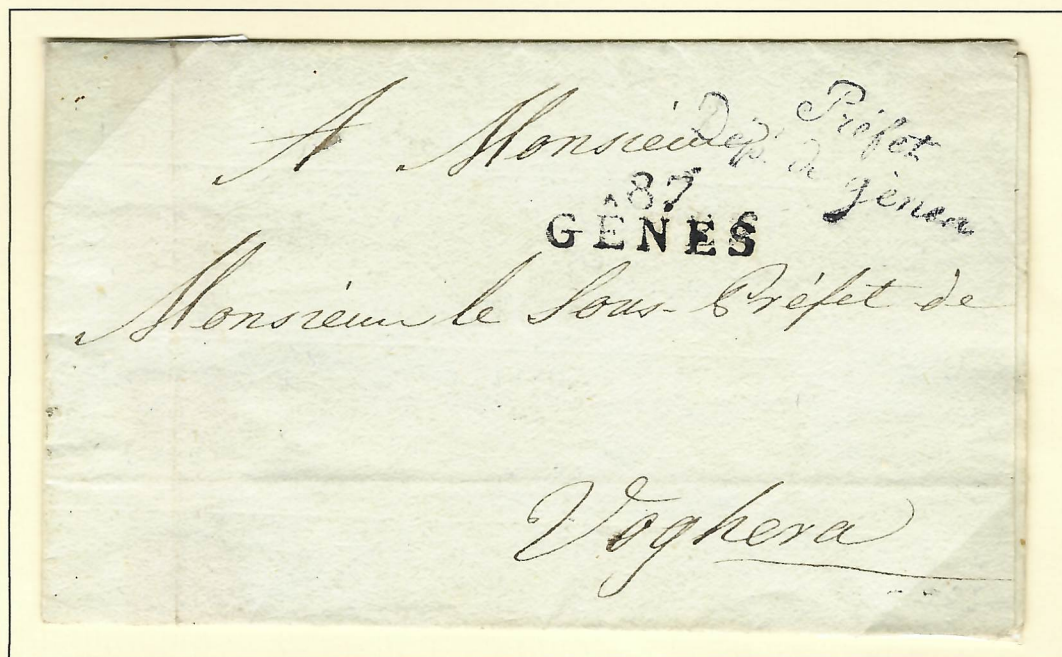 A Monsieur
Préfet
Dépt. de gènes
87
GÊNES
Monsieur le Sous-Préfet de
Voghera